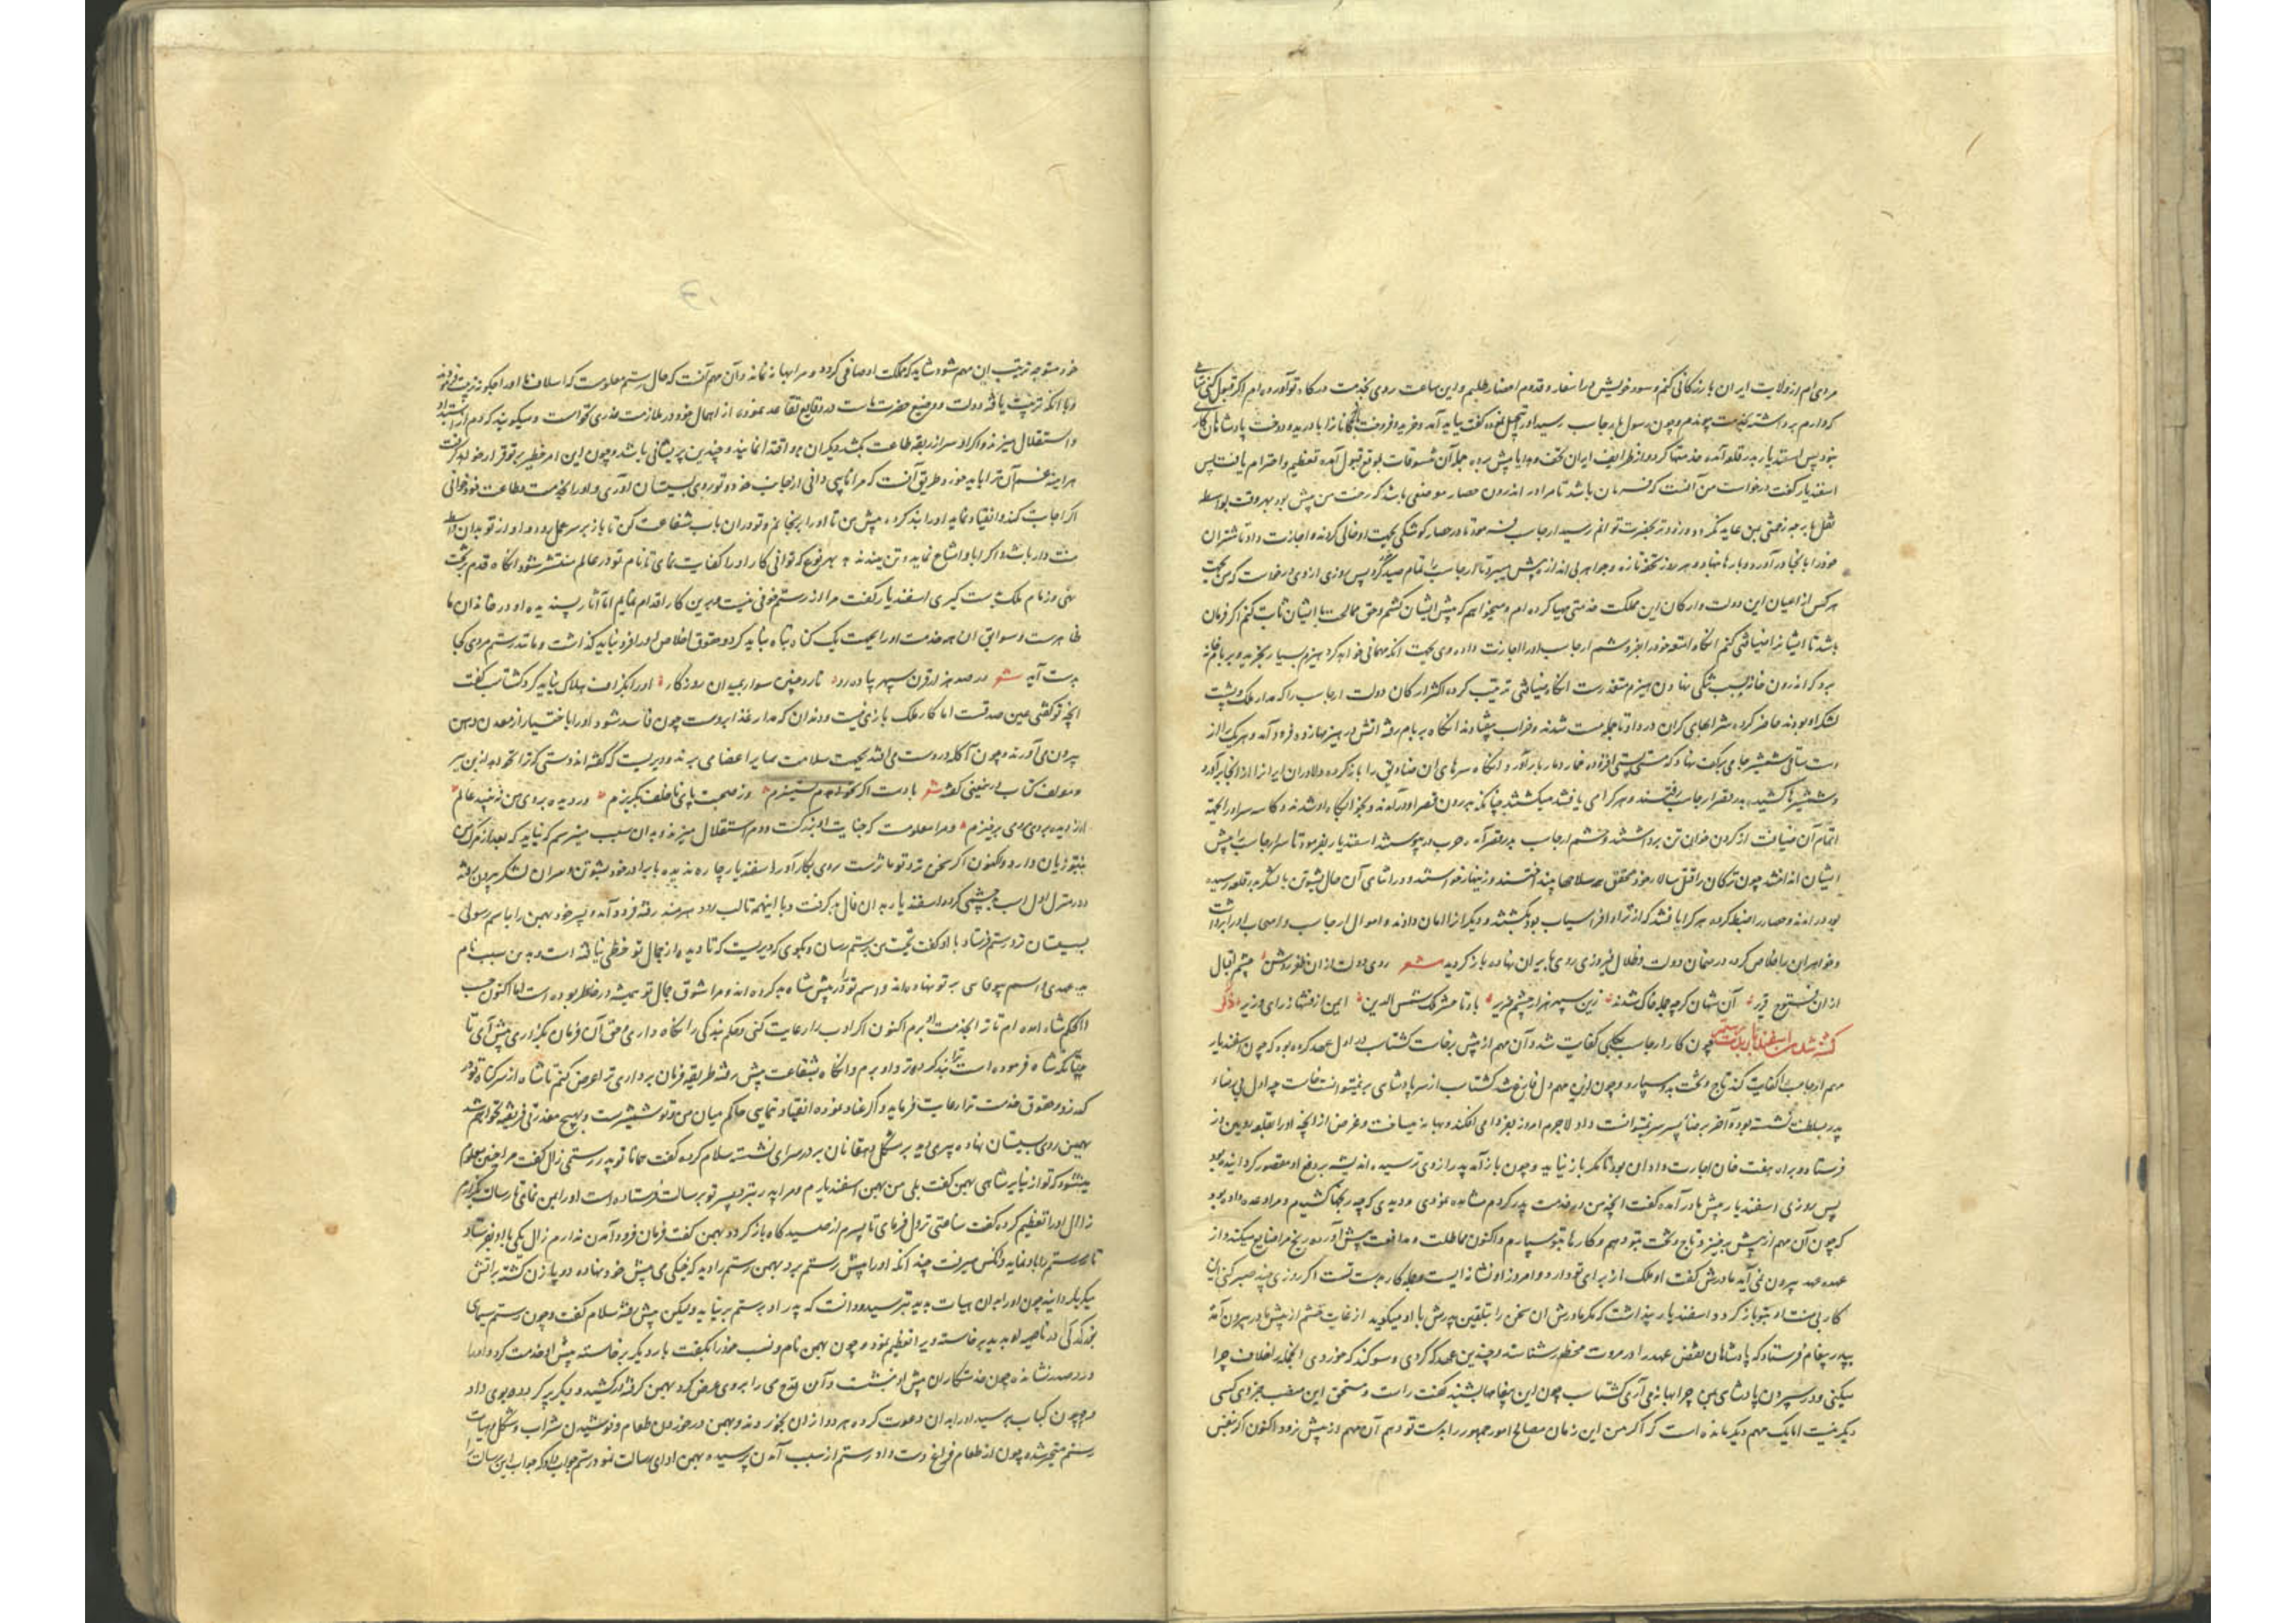 مردی ام از ولایت ایران بازرگانی کنم و سود خویش در اسفار و قدوم امصار طلبم و این ساعت روی بخدمت درگاه تو آورده ام اگر قبول کنی
که دارم برداشته بخدمت پیوندم و چون رسول بارجاسب رسید او را
خود پس اسفندیار بدر قلعه آمد و خدمتها کرد و از ظرایف ایران تحف و هدایا پیش برد و جمله آن بموقع قبول آمده تعظیم و احترام یافت پس
اسفندیار گفت درخواست من آنست که فرمان باشد تا مرا در اندرون حصار موضعی باشد که رخت من پیش بود بهر وقت بواسطه
نقل بار چه زحمتی بمن عاید نگردد و زودتر بحضرت توانم رسید ارجاسب فرمود تا در حصار کوشکی بجهت او خالی کردند و اجازت داد تا شتران
خود را بآنجا درآورد و بارها بنهاد و هر روز تحفه تازه و جواهر بی اندازه پیش میبرد تا ارجاسب را تمام صید کرد پس روزی از وی درخواست که من بجهت
هر کس از اعیان این دولت و ارکان این مملکت خدمتی مهیا کرده ام و میخواهم که پیش ایشان کشم و حق ممالحت با ایشان ثابت کنم اگر فرمان
باشد تا ایشانرا ضیافتی کنم آنگاه امتعه خود را بفروشم ارجاسب او را اجازت داد و وی بجهت آنکه مهمانی خواهد کرد هیزم بسیار بخرید و بر بام خانه
برد که اندرون خانه بسبب تنگی نهادن هیزم متعذرست آنگاه ضیافتی ترتیب کرده اکثر ارکان دولت ارجاسب را که مدار ملک و پشت
لشکر او بودند حاضر کرده شرابهای گران در داد تا جمله مست شدند و خراب بیفتادند آنگاه بر بام رفته آتش در هیزمها زد و فرود آمد و هر یک را از
دست ساقی شمشیر جامی بر کف نهاد که مستی آورد و آنگاه سرهای آن صنادیق را باز کرده دلاوران ایرانرا از آنجا برآورد
و شمشیرها کشیده بدر قصر ارجاسب رفتند و هر کرا می یافتند میکشتند چنانکه بیرون قصر او درآمدند و بخوابگاه او شدند و کاسه سر او را بجهت
اتمام آن ضیافت از گردن خوان تن برداشتند و حشم ارجاسب بدر قصر آمده حرب در پیوستند اسفندیار بفرمود تا سر ارجاسب را پیش
ایشان انداختند چون ترکان را قتل سالار خود محقق شد سلاحها بینداختند و زینهار خواستند و در اثنای آن حال بشوتن با لشکر بدر قلعه رسیده
بود درآمدند و حصار را ضبط کرده هر کرا یافتند که از نژاد افراسیاب بود بکشتند و دیگرانرا امان دادند و اموال ارجاسب و اصحاب او را برداشت
و خواهران را خلاص کرده در ضمان دولت و ظلال فیروزی روی بایران نهاده باز گردید شعر روی دولت از آن ظفر روشن چشم اقبال
از آن فتوح قریر آن شهان گرچه جمله خاک شدند زین سپهر نهاد چشم ضریر باد تا حشر ملک شمس الدین ایمن از فتنها برای وزیر ذکر
کشته شدن اسفندیار بدست رستم چون کار ارجاسب بکلی کفایت شد و آن مهم از پیش برخاست گشتاسب در اول عهد کرده بود که چون اسفندیار
مهم ارجاسب را کفایت کند تاج و تخت بدو سپارد و چون از این مهم دل فارغ شد گشتاسب از سر پادشاهی بر نمیتوانست خاست چه اول بی رضاء
پدر بسلطنت نشسته بود و آخر برضاء پسر سر نمیتوانست داد لاجرم امروز بفردا می افکند و بهانه میساخت و غرض از آنچه او را بقلعه رویین دز
فرستاد و براه هفت خان اجازت داد آن بود تا مگر باز نیاید و چون باز آمد پدر از وی ترسیده اندیشه بر دفع او مقصور گردانیده بود
پس روزی اسفندیار پیش مادر آمده گفت آنچه من در خدمت پدر کردم مشاهده نمودی و دیدی که چه رنجها کشیدم و مرا وعده داده بود
که چون آن مهم از پیش برخیزد تاج و تخت بتو دهم و کارها بتو سپارم و اکنون مماطلت و مدافعت پیش آورده رنج مرا ضایع میکند و از
عهده عهد بیرون نمی آید مادرش گفت او ملک از برای تو دارد و امروز او نشانه ایست و جمله کار بدست تست اگر روزی چند صبر کنی
کار بی منت او بتو باز گردد اسفندیار پنداشت که مگر مادرش آن سخن را بتلقین پدرش با او میگوید از غایت خشم از پیش مادر بیرون آمد
بپدر پیغام فرستاد که پادشاهان نقض عهد را در مروت محظور شناسند و چندین عهد که کردی و سوگند که خوردی انجاز را خلاف چرا
میکنی و در سپردن پادشاهی بمن چرا بهانه می آری گشتاسب چون این پیغامها بشنید گفت راست و مستحق این منصب جز وی کسی
دیگر نیست اما یک مهم دیگر مانده است که اگر من این زمان مصالح امور جمهور را بدست تو دهم آن مهم از پیش نرود اکنون اگر بنفس
خود متوجه ترتیب این مهم شود شاید که مملکت او صافی گردد و مرا بهانه نماند و آن مهم آنست که حال رستم معلومست که اسلاف ما او را چگونه تربیت فرمودند
و با آنکه تربیت یافته دولت و وضیع حضرت ماست در وقایع تقاعد نموده از اهمال خود در ملازمت عذری نخواست و میگویند که دم از استبداد
و استقلال میزند و اگر او سر از ربقه طاعت بکشد دیگران بدو اقتدا نمایند و چندین پریشانی باشد و چون این امر خطیر بر تو قرار خواهد گرفت
هر آینه غم آن ترا باید خورد و طریق آنست که مرا نایبی دانی از جانب خود و تو روی بسیستان آوری و او را بخدمت و طاعت خود خوانی
اگر اجابت کند و انقیاد نماید او را بند کرده پیش من تا او را برنجانم و تو در آن باب شفاعت کن تا باز بر سر عمل رود و او از تو بدان واسطه
منت دار باشد و اگر ابا و امتناع نماید و تن بندند بهر نوع که توانی کار او را کفایت نمای تا نام تو در عالم منتشر شود آنگاه قدم بر تخت
نهی و زمام ملک بدست گیری اسفندیار گفت مرا از رستم خوفی نیست و برین کار اقدام نمایم اما آثار پسندیده او در خاندان ما
ظاهرست و سوابق آن همه خدمت او را بجهت یک گناه تباه نباید کرد و حقوق اخلاص او را فرو نباید گذاشت و مانند رستم مردی کجا
بدست آید شعر در صد هزار قرن سپهر پیاده رو نارد چنین سوار بمیدان روزگار او را بگزاف هلاک نباید کرد گشتاسب گفت
آنچه تو گفتی عین صدقست اما کار ملک بازی نیست و دندان که مدار غذا بروست چون فاسد شود او را باختیار از معدن دهن
بیرون می آورند و چون آکله در دست می افتد بجهت سلامت سایر اعضا می برند و دیریست که گفته اند دستی که ترا نخواهد از بن ببر
و مولف کتاب در چنینی گفته شعر با دست اگر نخواهدم بستیزم وز صحبت پای ناخلف بگریزم ور دیده بروی من نخندد عالم
از دیده بروی بروی برخیزم و مرا معلومست که جنایت او بزرگست و دم استقلال میزند و بدان سبب میترسم که نباید که بعد از مرگ من
بتو زیان دارد و اکنون اگر سخن نزد تو مؤثرست روی بکار آور اسفندیار چاره ندیده با برادر خود بشوتن و سران لشکر بیرون رفته
و در منزل اول اسب چشمی کرد و اسفندیار بدان فال بد گرفت و با اینهمه تا لب رود هیرمند رفته فرود آمد و پسر خود بهمن را باسم رسولی
بسیستان نزد رستم فرستاد با او گفت تحیت من برستم رسان و بگوی که دیریست که تا دیده از جمال تو حظی نیافته است و بدین سبب نام
بدعهدی و اسم بیوفایی بر تو نهاده اند و اسم تو را پیش شاه بد کرده اند و مرا شوق جمال تو همیشه در خاطر بوده است لها اکنون حسب
الحکم شاه آمده ام تا ترا بخدمت او برم اکنون اگر ادب را رعایت کنی و حکم بندگی را نگاه داری و حق آن فرمان بگزاری پیش آی تا
چنانکه شاه فرموده است ترا بند کرده نزد او برم و آنگاه بشفاعت پیش رفته طریقه فرمان برداری ترا عرض کنم تا شاه از سر گناه تو در
گذرد و حقوق خدمت ترا رعایت فرماید و اگر عناد نموده انقیاد ننمایی حاکم میان من و تو شمشیرست و بهیچ معذرتی فریفته نخواهم شد
بهمن روی بسیستان نهاده پیری دید بر شکل دهقانان بر در سرای نشسته سلام کرده گفت همانا تو پدر رستمی زال گفت مرا چنین معلوم
میشود که تو از نبایر شاهی بهمن گفت بلی من بهمن اسفندیارم و مرا پدر بنزد پسر تو برسالت فرستاده است او را بمن نمای تا رسالت بگزارم
زال او را تعظیم کرده گفت ساعتی نزول فرمای تا پسرم از صید گاه باز گردد بهمن گفت فرمان فرود آمدن ندارم زال یکی با او بفرستاد
تا رستم را بدو نماید و آنکس میرفت چندانکه او را پیش رستم برد بهمن رستم را دید که خیکی می پیش خود نهاده دو پا زن کشته بر آتش
میگرداند چون او را بدان هیات بدید بترسید و دانست که پدر او برستم بر نیاید ولیکن پیش رفته سلام گفت و چون رستم سیمای
بزرگی در ناصیه او بدید برخاسته ویرا تعظیم نمود و چون بهمن نام و نسب خود را بگفت بار دیگر برخاسته پیش او خدمت کرد و او را
در صدر نشانده چون خدمتکاران پیش او بنشست و آن قدح می را بروی عرض کرد بهمن گرفته درکشید و دیگر پر کرده بدو داد
و چون کباب برسید او را بدان دعوت کرده هر دو از آن بخوردند و بهمن در خوردن طعام و نوشیدن شراب و شکل و هیات
رستم متحیر شده چون از طعام فراغ دست داد رستم از سبب آمدن پرسیده بهمن ادای رسالت نمود رستم جواب داد که جواب این رسالت را